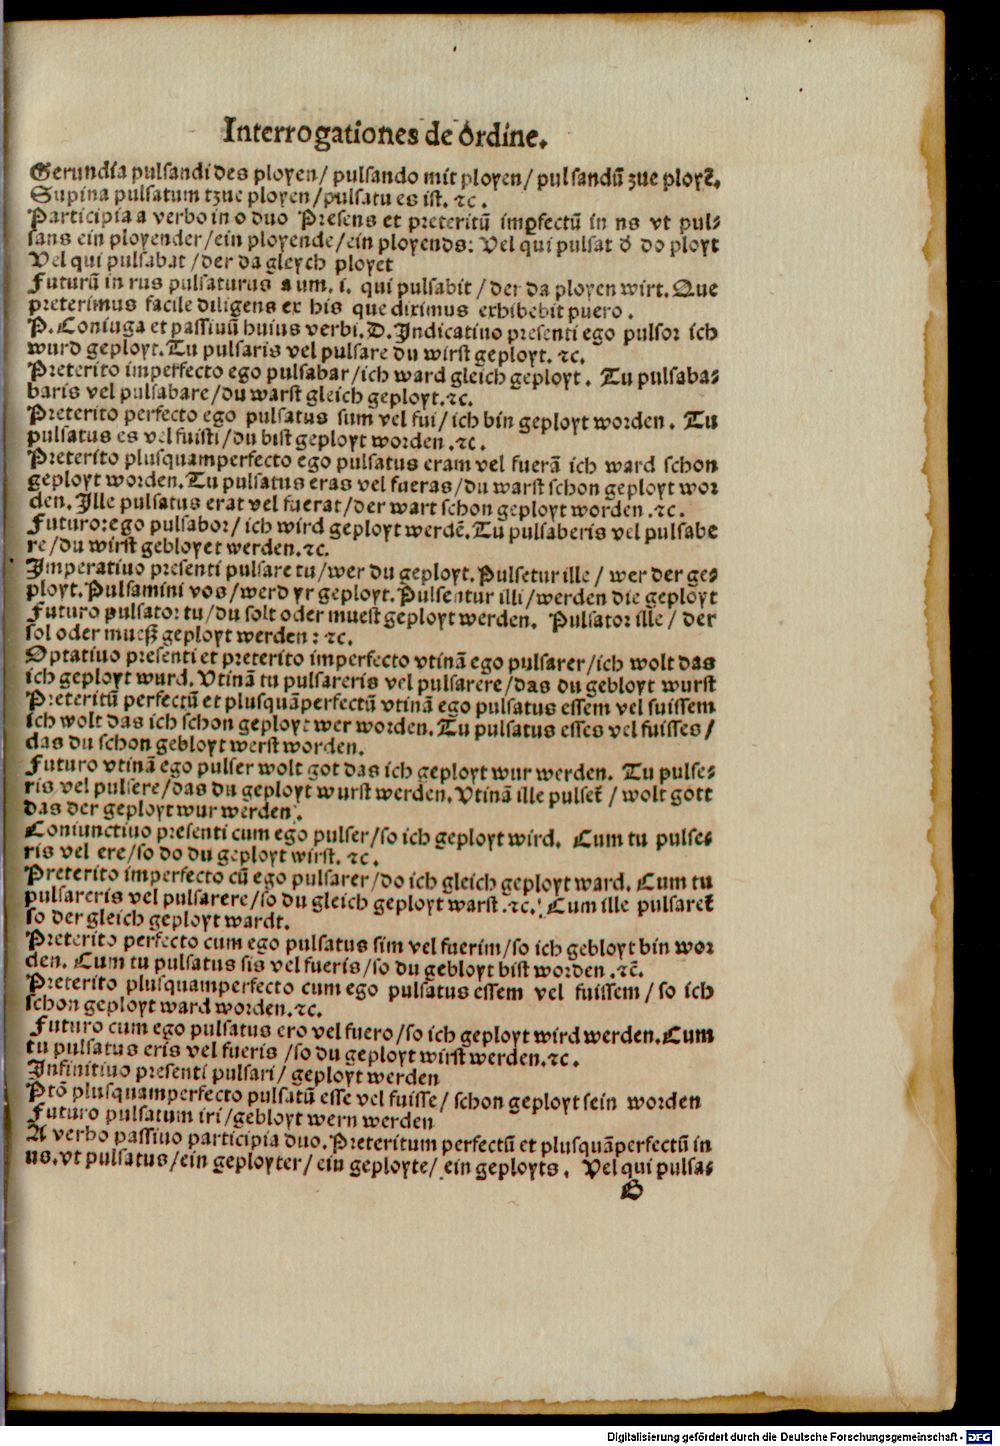 Interrogationes de ordine.
Gerundia pulsandi des ployen/ pulsando mit ployen/ pulsandū zue ployē.
Supina pulsatum tzue ployen/pulsatu es ist. ⁊c.
Participia a verbo in o duo Presens et preteritū imꝑfectū in ns vt pul⸗
sans ein ployender/ein ployende/ein ployends: Vel qui pulsat d̕ do ployt
Vel qui pulsabat/der da gleych ployet
Futurū in rus pulsaturus a um. i. qui pulsabit/der da ployen wirt. Que
preterimus facile diligens ex his que diximus exhibebit puero.
P. Coniuga et passiuū huius verbi. D. Indicatiuo presenti ego pulsor ich
wurd geployt. Tu pulsaris vel pulsare du wirst geployt. ⁊c.
Preterito imperfecto ego pulsabar/ich ward gleich geployt. Tu pulsaba⸗
baris vel pulsabare/du warst gleich geployt.⁊c.
Preterito perfecto ego pulsatus sum vel fui/ich bin geployt worden. Tu
pulsatus es vel fuisti/du bist geployt worden.⁊c.
Preterito plusquamperfecto ego pulsatus eram vel fuerā ich ward schon
geployt worden. Tu pulsatus eras vel fueras/du warst schon geployt wor
den. Ille pulsatus erat vel fuerat/der wart schon geployt worden.⁊c.
Futuro:ego pulsabor/ich wird geployt werdē. Tu pulsaberis vel pulsabe
re/du wirst gebloyet werden.⁊c.
Imperatiuo presenti pulsare tu/wer du geployt. Pulsetur ille/wer der ge⸗
ployt. Pulsamini vos/werd yr geployt. Pulsentur illi/werden die geployt
Futuro pulsator tu/du solt oder muest geployt werden. Pulsator ille/der
sol oder mueß geployt werden: ⁊c.
Optatiuo presenti et preterito imperfecto vtinā ego pulsarer/ich wolt das
ich geployt wurd. Vtinā tu pulsareris vel pulsarere/das du gebloyt wurst
Preteritū perfectū et plusquāperfectū vtinā ego pulsatus essem vel fuissem
ich wolt das ich schon geployt wer worden. Tu pulsatus esses vel fuisses/
das du schon gebloyt werst worden.
Futuro vtinā ego pulser wolt got das ich geployt wur werden. Tu pulse⸗
ris vel pulsere/das du geployt wurst werden. Vtinā ille pulset̄/wolt gott
das der geployt wur werden.
Coniunctiuo presenti cum ego pulser/so ich geployt wird. Cum tu pulse⸗
ris vel ere/so do du geployt wirst. ⁊c.
Preterito imperfecto cū ego pulsarer/do ich gleich geployt ward. Cum tu
pulsareris vel pulsarere/so du gleich geployt warst.⁊c. Cum ille pulsaret̄
so der gleich geployt wardt.
Preterito perfecto cum ego pulsatus sim vel fuerim/so ich gebloyt bin wor
den. Cum tu pulsatus sis vel fueris/so du gebloyt bist worden.⁊c̄.
Preterito plusquamperfecto cum ego pulsatus essem vel fuissem/so ich
schon geployt ward worden.⁊c.
Futuro cum ego pulsatus ero vel fuero/so ich geployt wird werden. Cum
tu pulsatus eris vel fueris/so du geployt wirst werden.⁊c.
Infinitiuo presenti pulsari/geployt werden
Ptō plusquamperfecto pulsatū esse vel fuisse/schon geployt sein worden
Futuro pulsatum iri/gebloyt wern werden
A verbo passiuo participia duo. Preteritum perfectū et plusquāperfectū in
us.vt pulsatus/ein geployter/ein geployte/ein geployts. Vel qui pulsa⸗
G
Digitalisierung gefördert durch die Deutsche Forschungsgemeinschaft - DFG